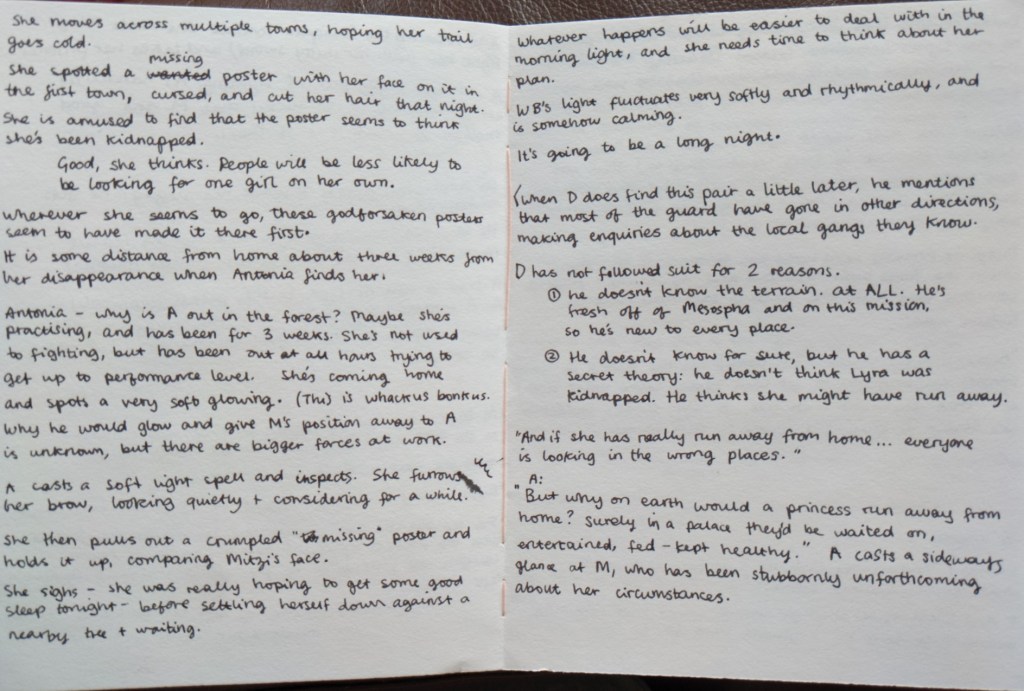 She moves across multiple towns, hoping her trail
goes cold.
missing
She spotted a wanted poster with her face on it in
the first town, cursed, and cut her hair that night.
She is amused to find that the poster seems to think
she's been kidnapped.
Good, she thinks. People will be less likely to
be looking for one girl on her own.
Wherever she seems to go, these godforsaken posters
seem to have made it there first.
It is some distance from home about three weeks from
her disappearance when Antonia finds her.
Antonia - why is A out in the forest? Maybe she's
practising, and has been for 3 weeks. She's not used
to fighting, but has been out at all hours trying to
get up to performance level. She's coming home
and spots a very soft glowing. (This) is whackus bonkus.
Why he would glow and give M's position away to A
is unknown, but there are bigger forces at work.
A casts a soft light spell and inspects. She furrows
her brow, looking quietly + considering for a while.
She then pulls out a crumpled "missing" poster and
holds it up, comparing Mitzi's face.
She sighs - she was really hoping to get some good
sleep tonight - before settling herself down against a
nearby tree + waiting.
Whatever happens will be easier to deal with in the
morning light, and she needs time to think about her
plan.
WB's light fluctuates very softly and rhythmically, and
is somehow calming.
It's going to be a long night.
(When D does find this pair a little later, he mentions
that most of the guard have gone in other directions,
making enquiries about the local gangs they know.
D has not followed suit for 2 reasons.
① he doesn't know the terrain. at ALL. He's
fresh off of Mesospha and on this mission,
so he's new to every place.
② He doesn't know for sure, but he has a
secret theory: he doesn't think Lyra was
kidnapped. He thinks she might have run away.
"And if she has really run away from home... everyone
is looking in the wrong places."
A:
"But why on earth would a princess run away from
home? Surely in a palace they'd be waited on,
entertained, fed - kept healthy." A casts a sideways
glance at M, who has been stubbornly unforthcoming
about her circumstances.